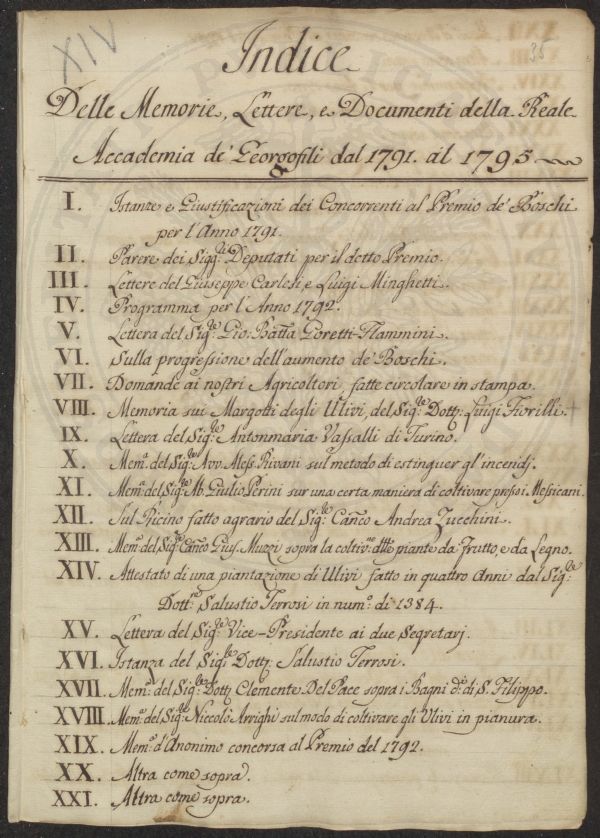 XIV
35
Indice
Delle Memorie, Lettere, e Documenti della Reale
Accademia de' Georgofili dal 1791. al 1795
I. Istanze e Giustificazioni dei Concorrenti al Premio de' Boschi
per l'Anno 1791.
II. Parere dei Sigg:ri Deputati per il detto Premio.
III. Lettere del Giuseppe Carlesi, e Luigi Minghetti.
IV. Programma per l'Anno 1792.
V. Lettera del Sig:re Gio: Batta Goretti-Flammini.
VI. Sulla progressione dell'aumento de' Boschi.
VII. Domande ai nostri Agricoltori fatte circolare in stampa.
VIII. Memoria sui Margotti degli Ulivi, del Sig:re Dott: Luigi Fiorilli.
IX. Lettera del Sig:re Antonmaria Vassalli di Turino.
X. Mem:a del Sig:re Avv. Aless. Rivani sul metodo di estinguer gl'incendj.
XI. Mem:a del Sig:re Ab. Giulio Perini sur una certa maniera di coltivare presso i Messicani.
XII. Sul Ricino fatto agrario del Sig:re Can:co Andrea Zucchini.
XIII. Mem:a del Sig:re Can:co Gius. Muzzi sopra la coltiv:ne delle piante da Frutto, e da Legno.
XIV. Attestato di una piantazione di Ulivi fatto in quattro Anni dal Sig:re
Dott:re Salustio Terrosi in num:o di 1384.
XV. Lettera del Sig:re Vice-Presidente ai due Segretarj.
XVI. Istanza del Sig:re Dott: Salustio Terrosi.
XVII. Mem:a del Sig:re Dott: Clemente Del Pace sopra i Bagni d:i di S. Filippo.
XVIII. Mem:a del Sig:re Niccolò Arrighi sul modo di coltivare gli Ulivi in pianura.
XIX. Mem:a d'Anonimo concorsa al Premio del 1792.
XX. Altra come sopra.
XXI. Altra come sopra.